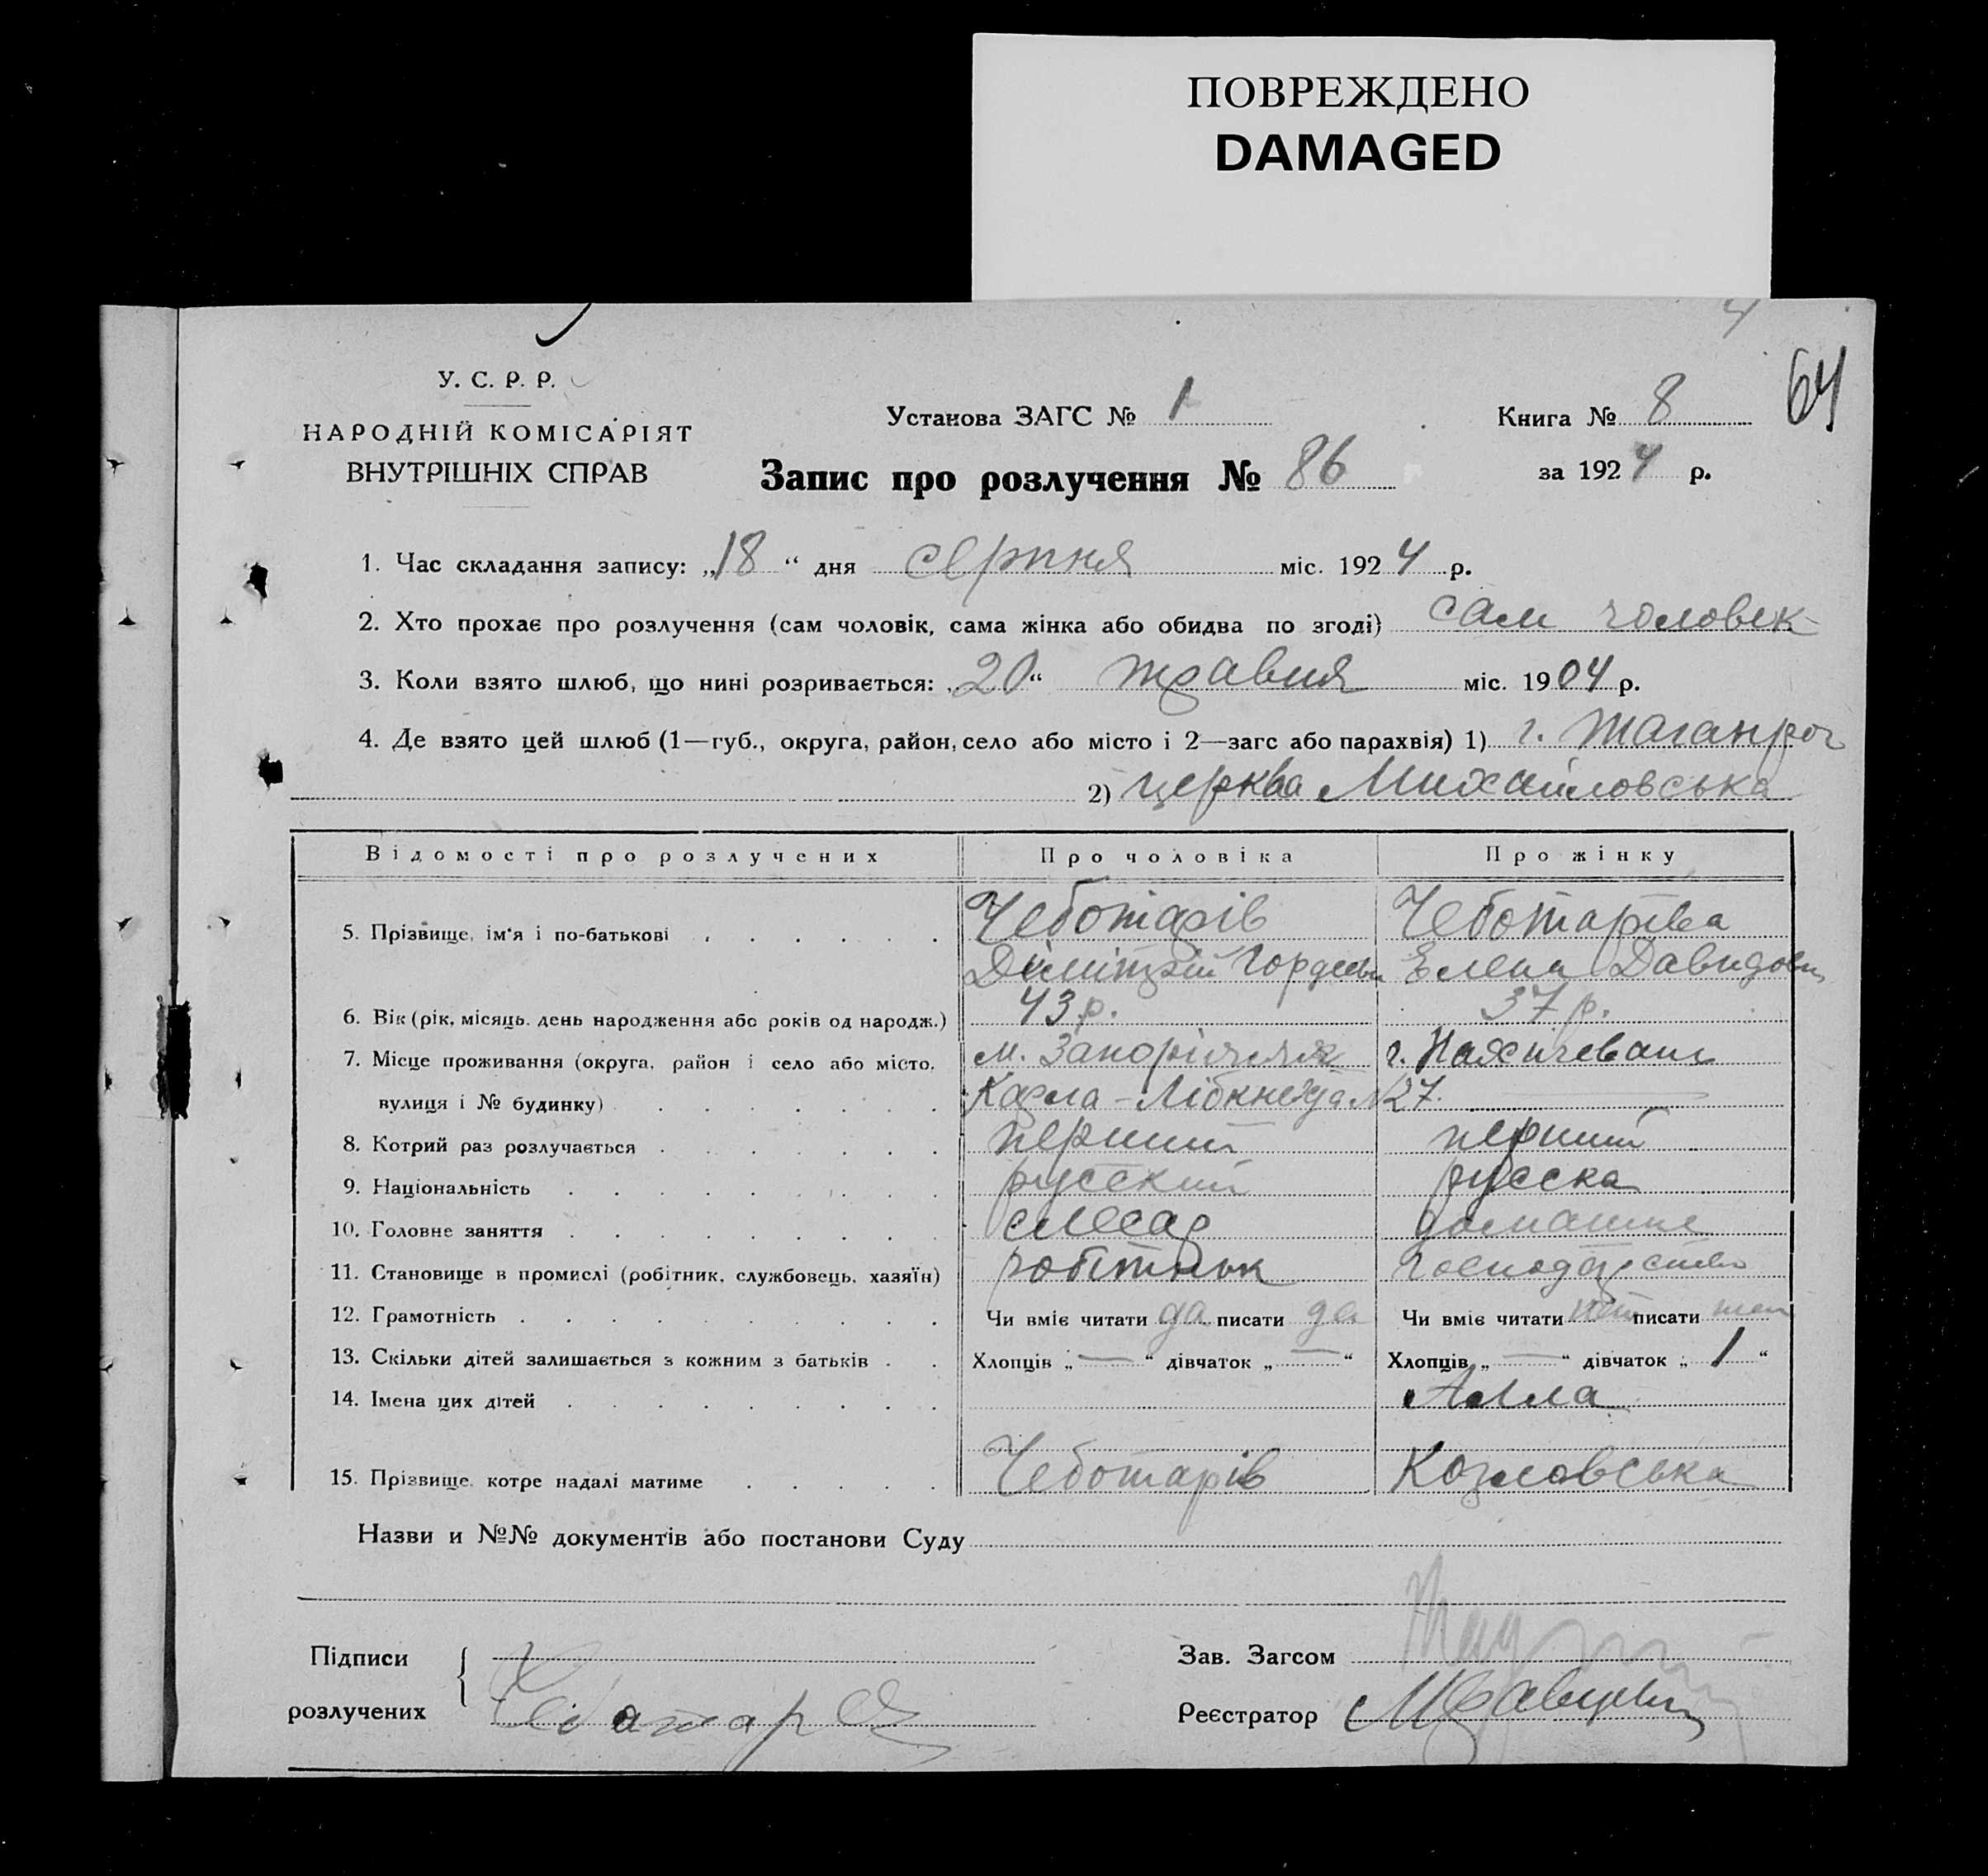 ПОВРЕЖДЕНО
DAMAGED
4
64
У. С. Р. Р.
НАРОДНІЙ КОМІСАРІЯТ
ВНУТРІШНІХ СПРАВ
Установа ЗАГС № 1
Книга № 8
Запис про розлучення № 86
за 1924 р.
1. Час складання запису: „18“ дня серпня міс. 1924 р.
2. Хто прохає про розлучення (сам чоловік, сама жінка або обидва по згоді) сам чоловек
3. Коли взято шлюб, що нині розривається: „20“ травня міс. 1904 р.
4. Де взято цей шлюб (1—губ., округа, район, село або місто і 2—загс або парахвія) 1) г. Таганрог
2) церква Михайловська
Відомості про розлучених Про чоловіка Про жінку
5. Прізвище, ім'я і по-батькові Чеботарів Чеботарева
Димітрій Гордеевич Елена Давидовн
6. Вік (рік, місяць, день народження або років од народж.) 43 р. 37 р.
7. Місце проживання (округа, район і село або місто, м. Запоріжжя г. Нахичевань
вулиця і № будинку) Карла-Лібкнехта №27.
8. Котрий раз розлучається перший перший
9. Національність русский русска
10. Головне заняття слесар домашне
11. Становище в промислі (робітник, службовець, хазяїн) робітник господарство
12. Грамотність Чи вміє читати да писати да Чи вміє читати нет писати нет
13. Скільки дітей залишається з кожним з батьків Хлопців „—“ дівчаток „—“ Хлопців „—“ дівчаток „1“
14. Імена цих дітей Алла
15. Прізвище, котре надалі матиме Чеботарів Козловська
Назви и №№ документів або постанови Суду
Підписи
розлучених
Чеботар
Зав. Загсом
Реєстратор